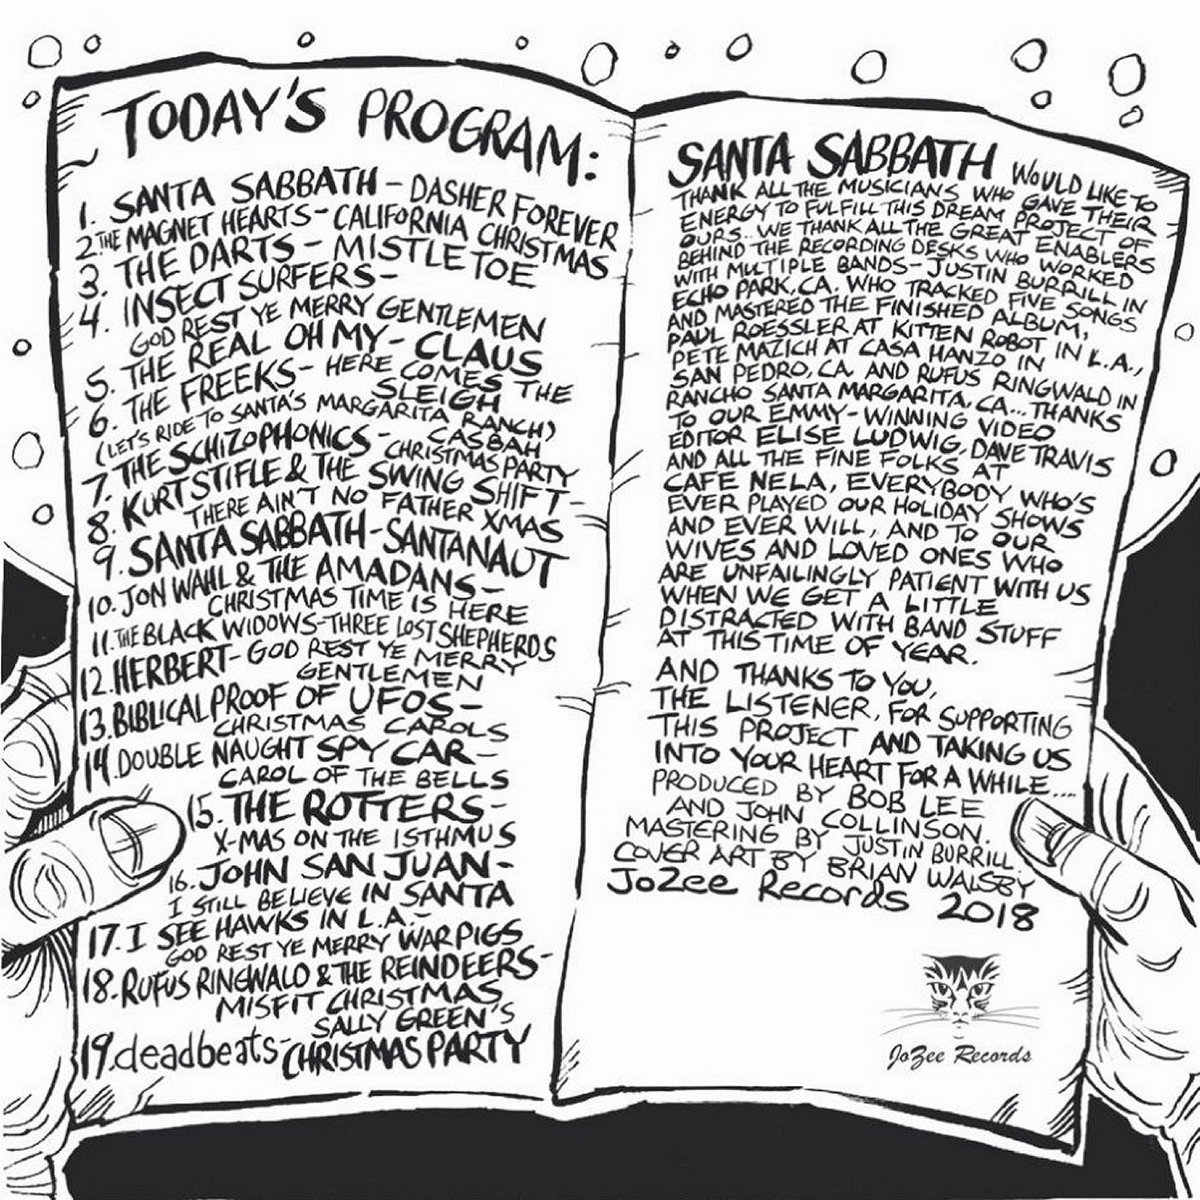 TODAY'S PROGRAM:
1. SANTA SABBATH - DASHER FOREVER
2. THE MAGNET HEARTS - CALIFORNIA CHRISTMAS
3. THE DARTS - MISTLETOE
4. INSECT SURFERS -
GOD REST YE MERRY GENTLEMEN
5. THE REAL OH MY - CLAUS
6. THE FREEKS - HERE COMES THE
SLEIGH
(LET'S RIDE TO SANTA'S MARGARITA RANCH)
7. THE SCHIZOPHONICS - CASBAH
CHRISTMAS PARTY
8. KURT STIFLE & THE SWING SHIFT -
THERE AIN'T NO FATHER XMAS
9. SANTA SABBATH - SANTANAUT
10. JON WAHL & THE AMADANS -
CHRISTMAS TIME IS HERE
11. THE BLACK WIDOWS - THREE LOST SHEPHERDS
12. HERBERT - GOD REST YE MERRY
GENTLEMEN
13. BIBLICAL PROOF OF UFOS -
CHRISTMAS CAROLS
14. DOUBLE NAUGHT SPY CAR -
CAROL OF THE BELLS
15. THE ROTTERS -
X-MAS ON THE ISTHMUS
16. JOHN SAN JUAN -
I STILL BELIEVE IN SANTA
17. I SEE HAWKS IN L.A. -
GOD REST YE MERRY WAR PIGS
18. RUFUS RINGWALD & THE REINDEERS -
MISFIT CHRISTMAS
19. deadbeats - SALLY GREEN'S
CHRISTMAS PARTY
SANTA SABBATH WOULD LIKE TO
THANK ALL THE MUSICIANS WHO GAVE THEIR
ENERGY TO FULFILL THIS DREAM PROJECT OF
OURS.. WE THANK ALL THE GREAT ENABLERS
BEHIND THE RECORDING DESKS WHO WORKED
WITH MULTIPLE BANDS - JUSTIN BURRILL IN
ECHO PARK, CA. WHO TRACKED FIVE SONGS
AND MASTERED THE FINISHED ALBUM,
PAUL ROESSLER AT KITTEN ROBOT IN L.A.,
PETE MAZICH AT CASA HANZO IN
SAN PEDRO, CA. AND RUFUS RINGWALD IN
RANCHO SANTA MARGARITA, CA... THANKS
TO OUR EMMY-WINNING VIDEO
EDITOR ELISE LUDWIG, DAVE TRAVIS
AND ALL THE FINE FOLKS AT
CAFE NELA, EVERYBODY WHO'S
EVER PLAYED OUR HOLIDAY SHOWS
AND EVER WILL, AND TO OUR
WIVES AND LOVED ONES WHO
ARE UNFAILINGLY PATIENT WITH US
WHEN WE GET A LITTLE
DISTRACTED WITH BAND STUFF
AT THIS TIME OF YEAR.
AND THANKS TO YOU,
THE LISTENER, FOR SUPPORTING
THIS PROJECT AND TAKING US
INTO YOUR HEART FOR A WHILE....
PRODUCED BY BOB LEE
AND JOHN COLLINSON.
MASTERING BY JUSTIN BURRILL.
COVER ART BY BRIAN WALSBY
JoZee Records 2018
JoZee Records